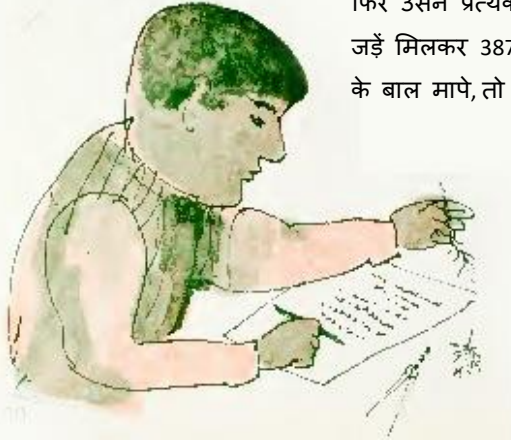 फिर उसने प्रत्येक
जड़ें मिलकर 387
के बाल मापे, तो